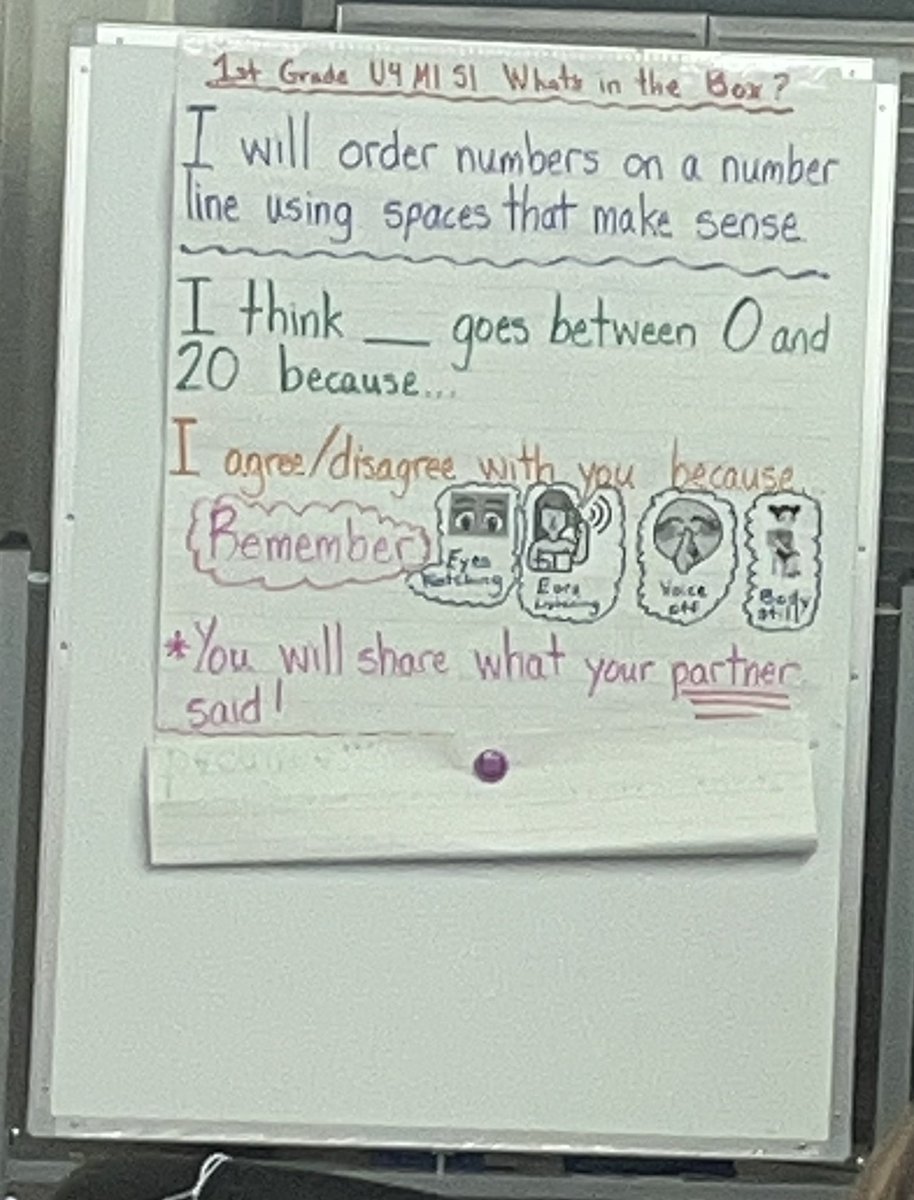 1st Grade U4 M1 S1 Whats in the Box?
I will order numbers on a number
line using spaces that make sense
I think __ goes between 0 and
20 because...
I agree/disagree with you because
Remember
Eyes
Watching
Ears
Listening
Voice
off
Body
still
*You will share what your partner
said!